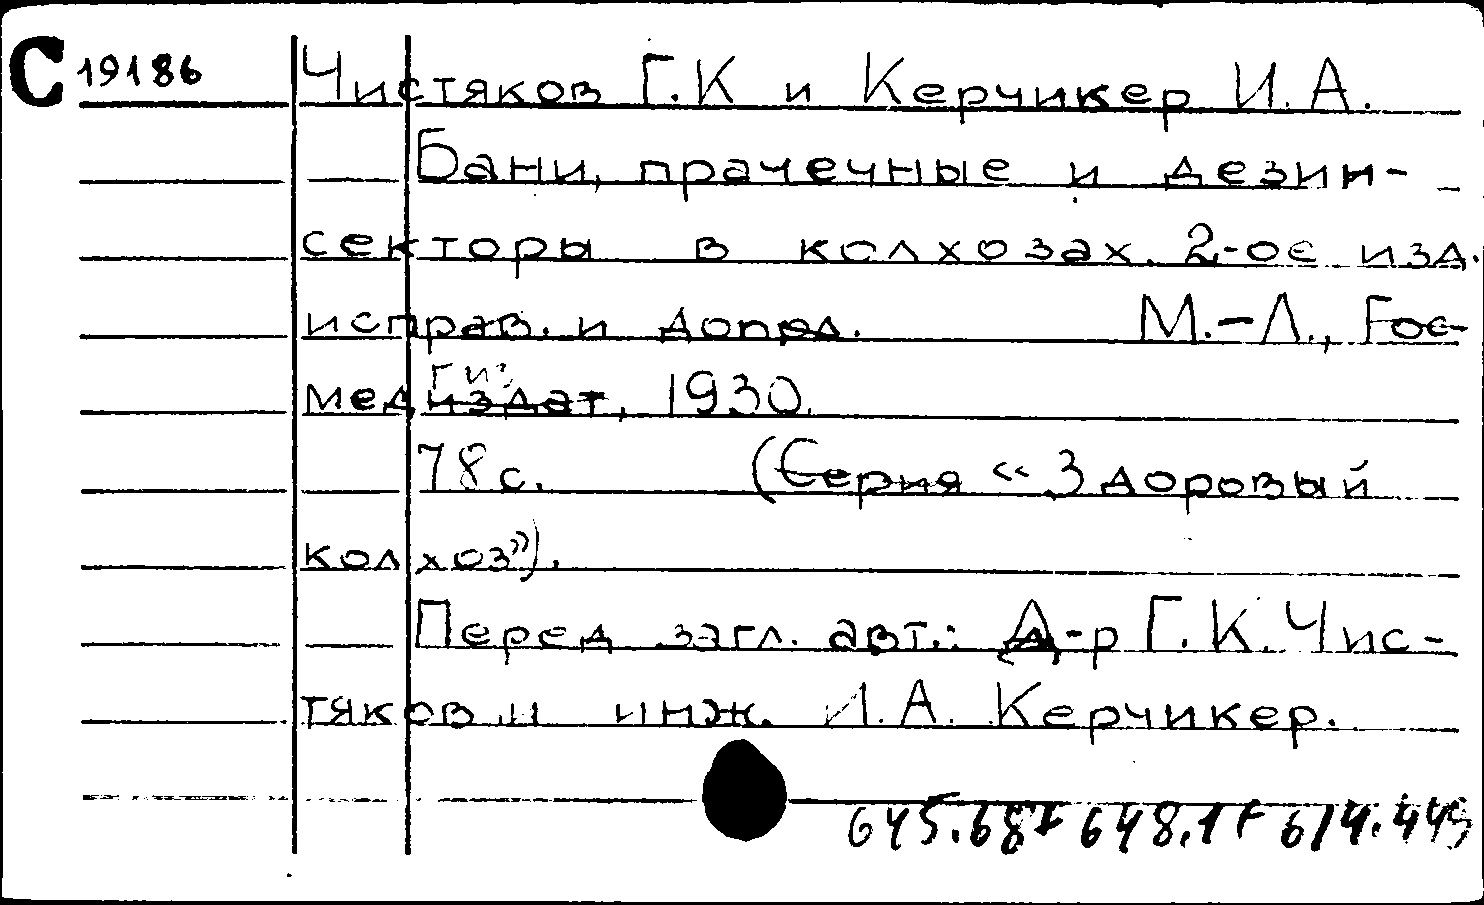 С 19186 Чистяков Г.К и Керчикер И.А.
Бани, прачечные и дезин-
секторы в колхозах. 2-ое изд.
исправ. и допол. М.-Л., Гос-
медгиз, 1930.
78 с. (Серия «Здоровый
колхоз»).
Перед загл. авт.: Д-р Г.К.Чис-
тяков и инж. И.А. Керчикер.
645.68+648.1+614.449